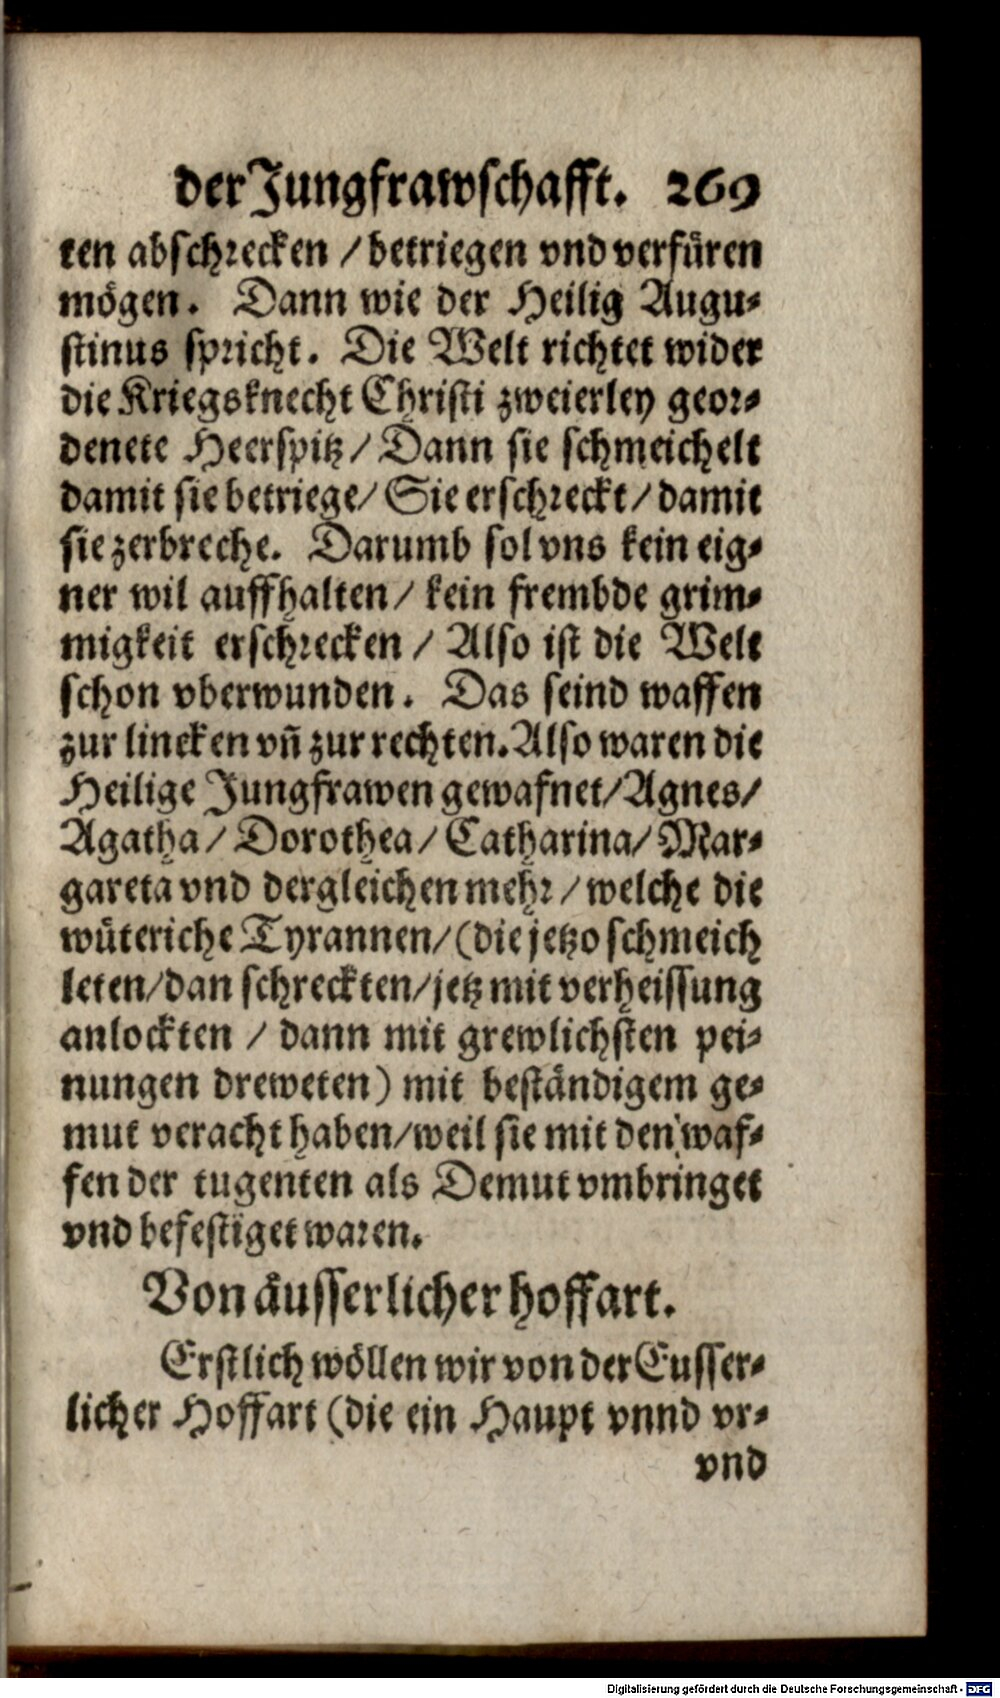 der Jungfrawschafft. 269
ten abschrecken / betriegen vnd verfüren
mögen. Dann wie der Heilig Augu-
stinus spricht. Die Welt richtet wider
die Kriegsknecht Christi zweierley geor-
denete Heerspitz / Dann sie schmeichelt
damit sie betriege / Sie erschreckt / damit
sie zerbreche. Darumb sol vns kein eig-
ner wil auffhalten / kein frembde grim-
migkeit erschrecken / Also ist die Welt
schon vberwunden. Das seind waffen
zur lincken vñ zur rechten. Also waren die
Heilige Jungfrawen gewafnet / Agnes /
Agatha / Dorothea / Catharina / Mar-
gareta vnd dergleichen mehr / welche die
wüteriche Tyrannen / (die jetzo schmeich
leten / dan schreckten / jetz mit verheissung
anlockten / dann mit grewlichsten pei-
nungen dreweten) mit beständigem ge-
mut veracht haben / weil sie mit den waf-
fen der tugenten als Demut vmbringet
vnd befestiget waren.
Von äusserlicher hoffart.
Erstlich wöllen wir von der Eusser-
licher Hoffart (die ein Haupt vnnd vr-
vnd
Digitalisierung gefördert durch die Deutsche Forschungsgemeinschaft - DFG